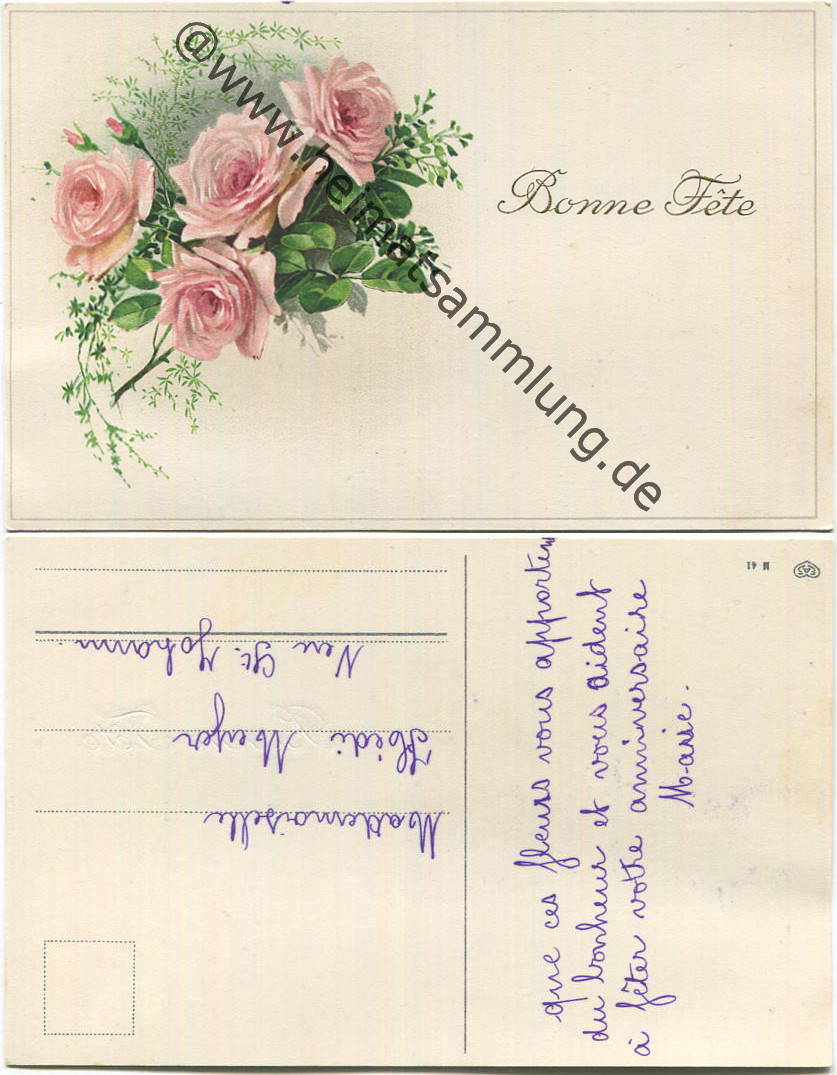 Bonne Fête
@www.heimatsammlung.de
Mademoiselle
Heidi Meyer
Neu St. Johann.
que ces fleurs vous apportent
du bonheur et vous aident
à fêter votre anniversaire
Marie.
M 41
EAS